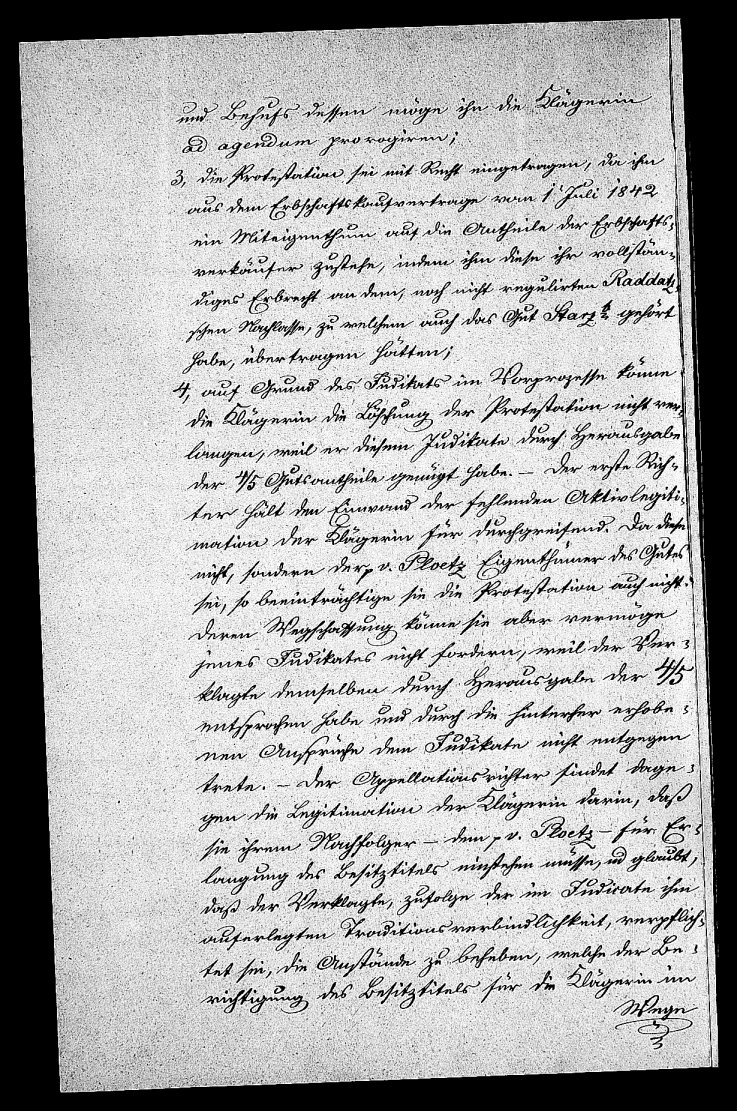 und Behufs dessen möge ihn die Klägerin
ad agendum prorogiren;
3, die Protestation sei mit Recht eingetragen, da ihm
aus dem Erbschaftskaufvertrage vom 1t Juli 1842
ein Miteigenthum auf die Antheile der Erbschafts-
verkäufer zustehe, indem ihm diese ihr vollstän-
diges Erbrecht an dem, noch nicht regulirten Raddatz
schen Nachlasse, zu welchem auch das Gut Starz gehört
habe, übertragen hätten;
4, auf Grund des Judikats im Vorprozesse könne
die Klägerin die Löschung der Protestation nicht ver-
langen, weil er diesem Judikate durch Herausgabe
der 4/5 Gutsantheile genügt habe. – Der erste Rich-
ter hält den Einwand der fehlenden Aktivlegiti-
mation der Klägerin für durchgreifend. Da diese
nicht, sondern der p v. Ploetz Eigenthümer des Gutes
sei, so beeinträchtige sie die Protestation auch nicht.
Deren Wegschaffung könne sie aber vermöge
jenes Judikates nicht fordern, weil der Ver-
klagte demselben durch Herausgabe der 4/5
entsprochen habe und durch die hinterher erhobe-
nen Ansprüche dem Judikate nicht entgegen
trete. – Der Appellationsrichter findet dage-
gen die Legitimation der Klägerin darin, daß
sie ihrem Nachfolger – dem p v. Ploetz – für Er-
langung des Besitztitels einstehen müsse, und glaubt,
daß der Verklagte, zufolge der im Judicate ihm
auferlegten Traditionsverbindlichkeit, verpflich-
tet sei, die Anstände zu beheben, welche der Be-
richtigung des Besitztitels für die Klägerin im
Wege